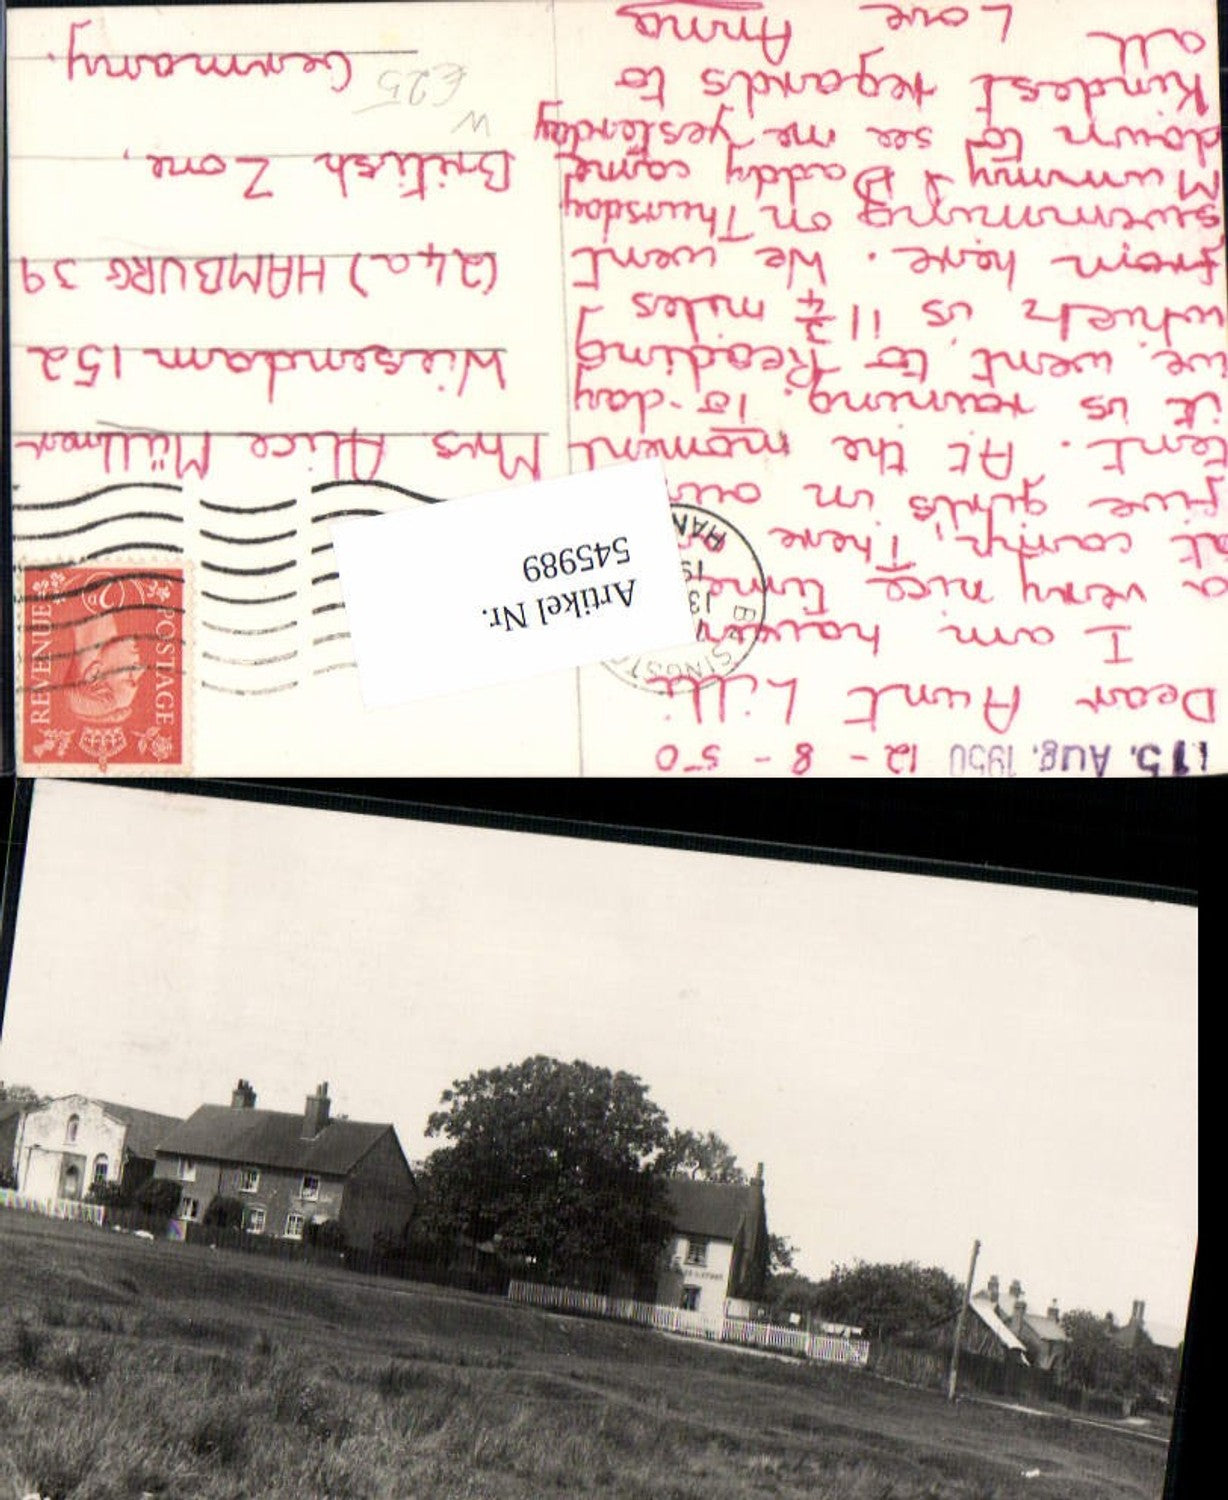 15. Aug. 1950 12 - 8 - 50
Dear Aunt Lilli
I am having
a very nice time
at camp, There are
five girls in our
tent. At the moment
it is raining. To-day
we went to Reading
which is 11 3/4 miles
from here. We went
swimming on Thursday
Mummy & Daddy came
down to see me yesterday
Kindest regards to
all Love Anna
POSTAGE
REVENUE
2D
B
13
19
HAN
Artikel Nr.
545989
Mrs. Alice Müllner
Wiesendam 152
(24a) HAMBURG 39
British Zone,
Germany.
W
£25